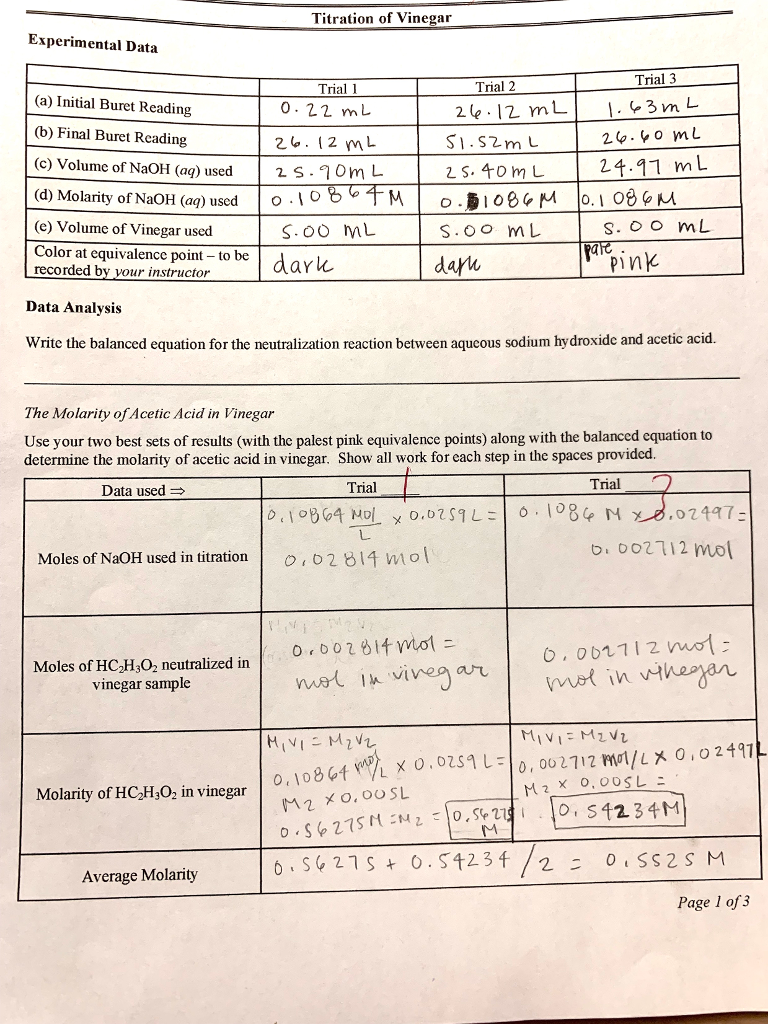 Titration of Vinegar
Experimental Data
Trial 1 Trial 2 Trial 3
(a) Initial Buret Reading 0.22 mL 26.12 mL 1.63 mL
(b) Final Buret Reading 26.12 mL 51.52 mL 26.60 mL
(c) Volume of NaOH (aq) used 25.90 mL 25.40 mL 24.97 mL
(d) Molarity of NaOH (aq) used 0.10864 M 0.1086 M 0.1086M
(e) Volume of Vinegar used 5.00 mL 5.00 mL 5.00 mL
Color at equivalence point – to be
recorded by your instructor dark dark pale pink
Data Analysis
Write the balanced equation for the neutralization reaction between aqueous sodium hydroxide and acetic acid.
The Molarity of Acetic Acid in Vinegar
Use your two best sets of results (with the palest pink equivalence points) along with the balanced equation to
determine the molarity of acetic acid in vinegar. Show all work for each step in the spaces provided.
Data used ⇒ Trial 1 Trial 3
Moles of NaOH used in titration
0.10864 mol/L x 0.0259 L =
0.02814 mol
0.1086 M x 0.02497 =
0.002712 mol
Moles of HC₂H₃O₂ neutralized in
vinegar sample
0.002814 mol =
mol in vinegar
0.002712 mol =
mol in vinegar
Molarity of HC₂H₃O₂ in vinegar
M1V1 = M2V2
0.10864 mol/L x 0.0259 L =
M2 x 0.005L
0.56275M = M2 = 0.56275 M
M1V1 = M2V2
0.002712 mol/L x 0.02497L
M2 x 0.005L =
0.54234M
Average Molarity 0.56275 + 0.54234 / 2 = 0.5525 M
Page 1 of 3